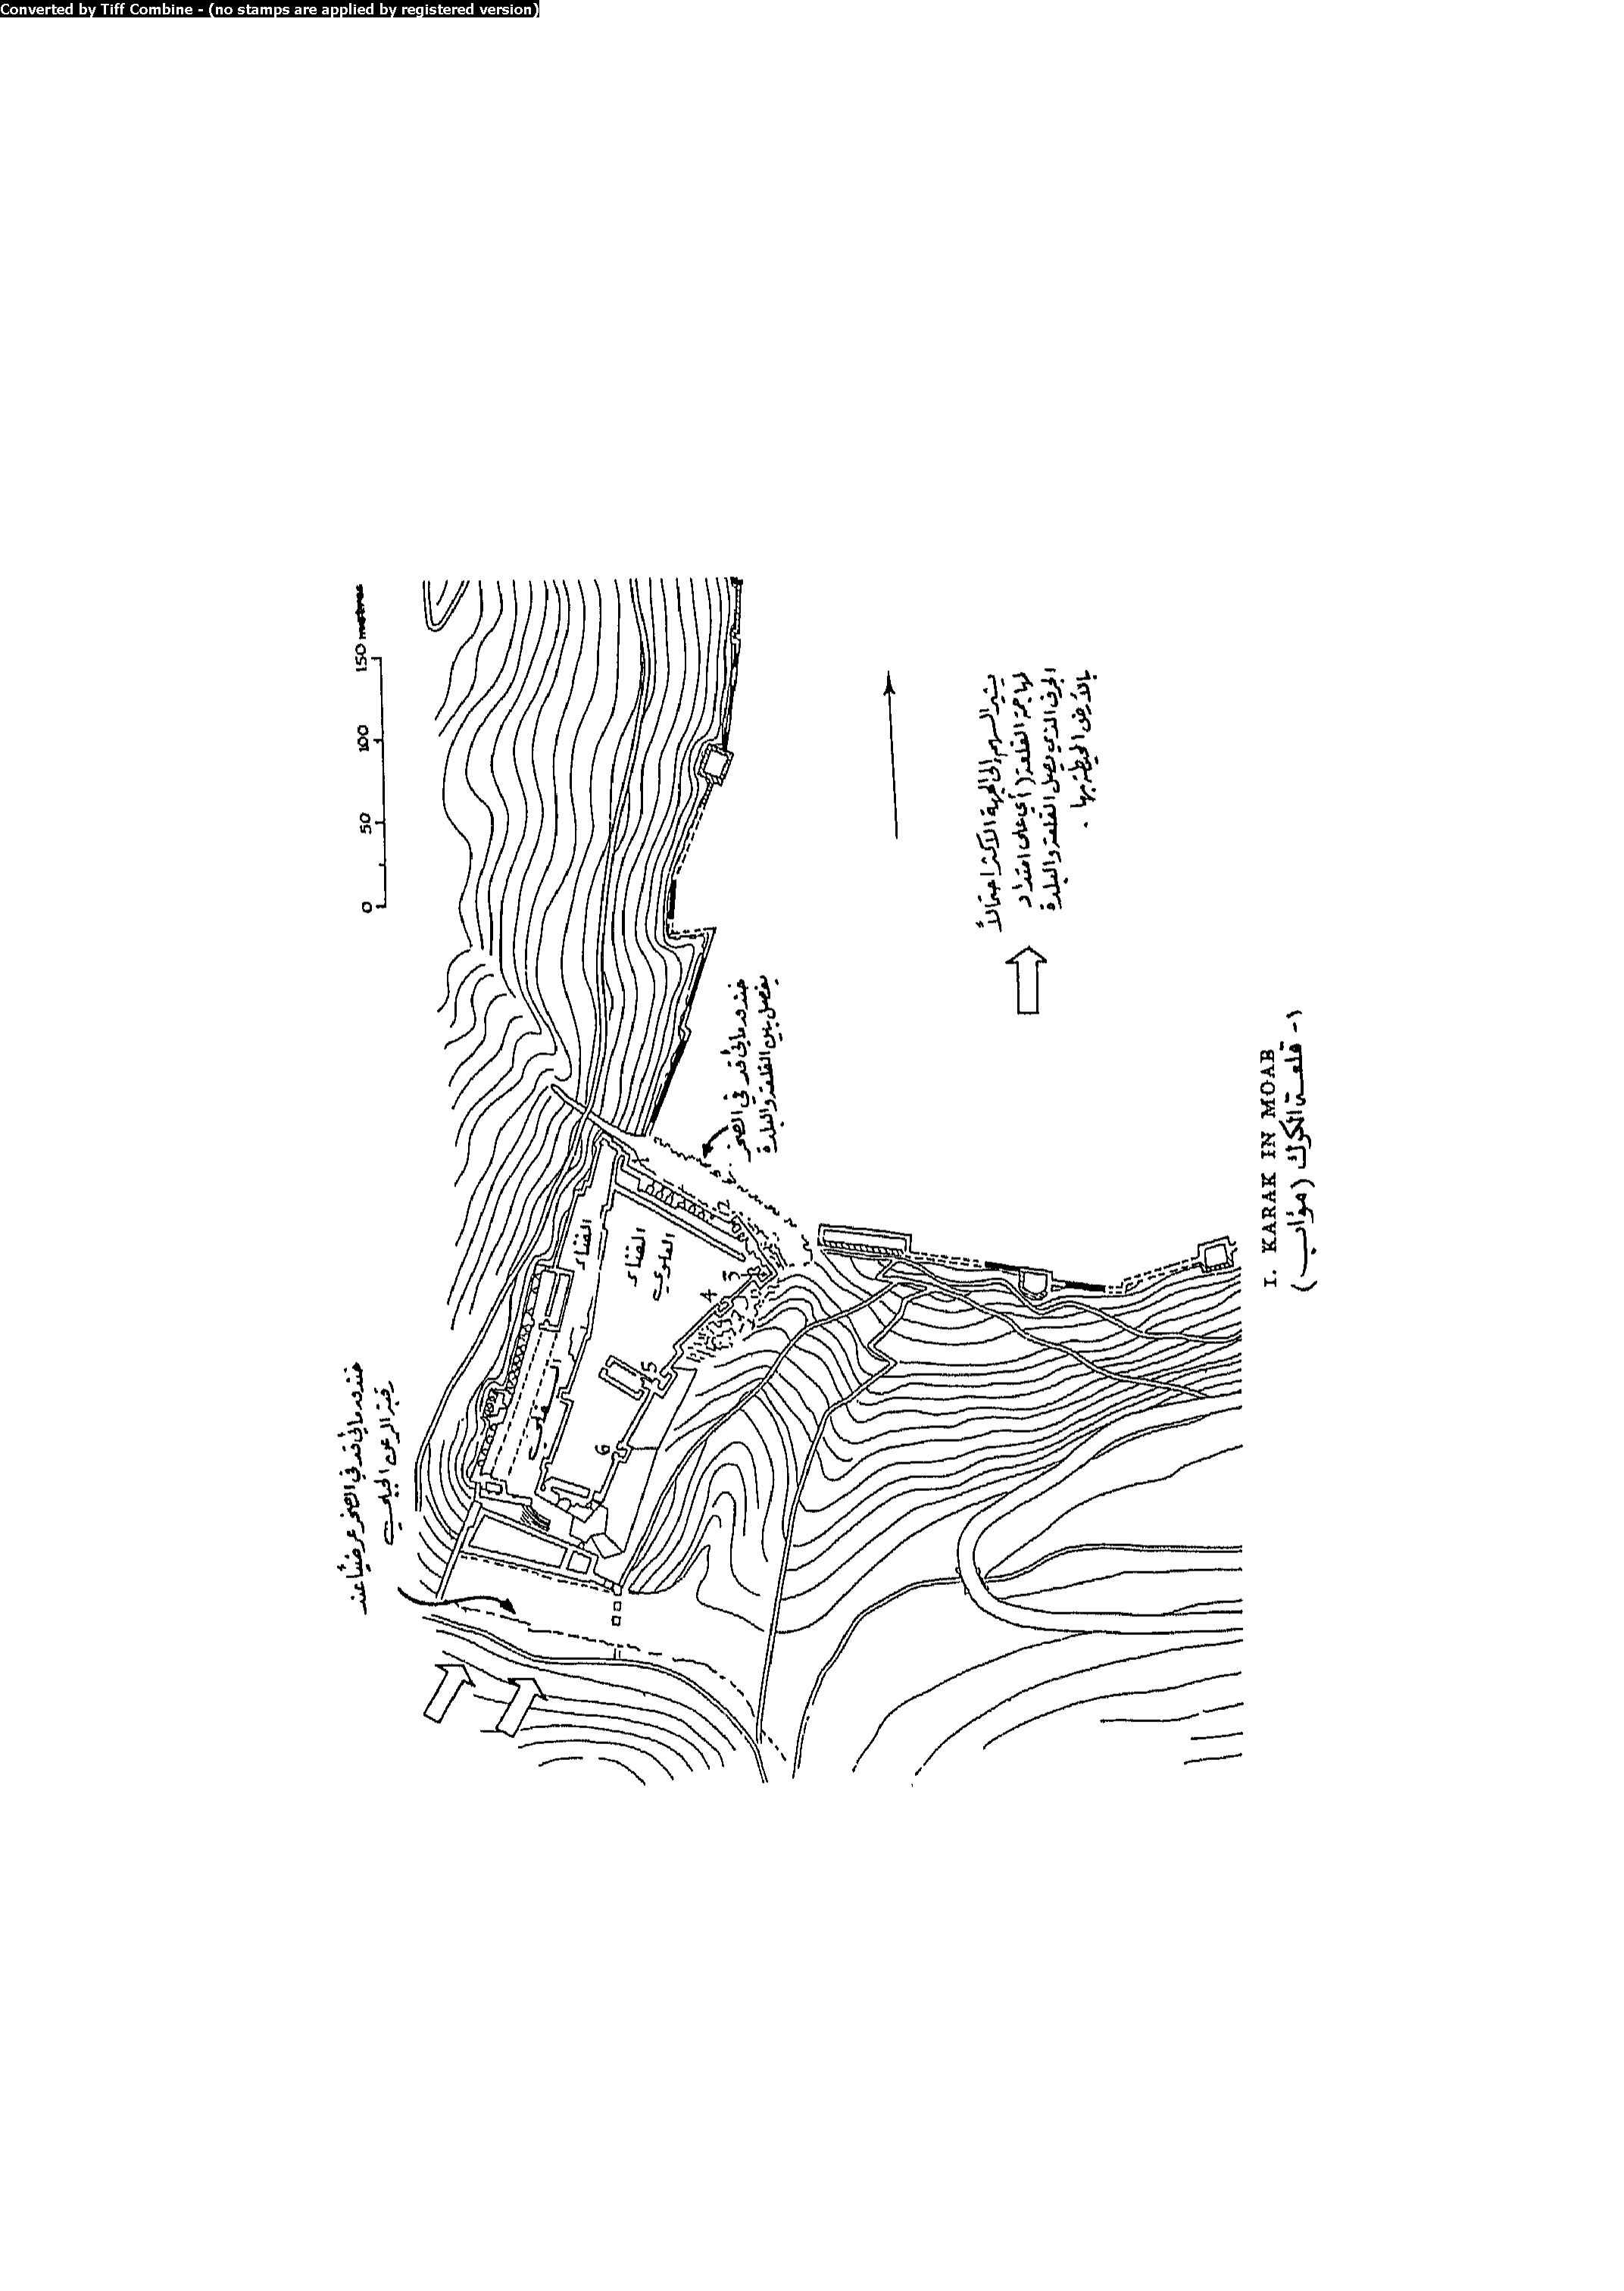 Converted by Tiff Combine - (no stamps are applied by registered version)
0 50 100 150 metres
خندق مائي قد في الصخر عرضياً عند
رقبة الرعن الجبلي
الفناء
الفناء
العلوي
1
2
3
4
5
6
خندق مائي قد في الصخر
يفصل بين القلعة والبلدة
يشير السهم إلى الجهة الأكثر احتمالاً
لمهاجمة القلعة (أي على امتداد
الجرف الذي يصل القلعة والبلدة
بالأرض المحيطة بها .
I. KARAK IN MOAB
١- قلعة الكرك (مؤاب)